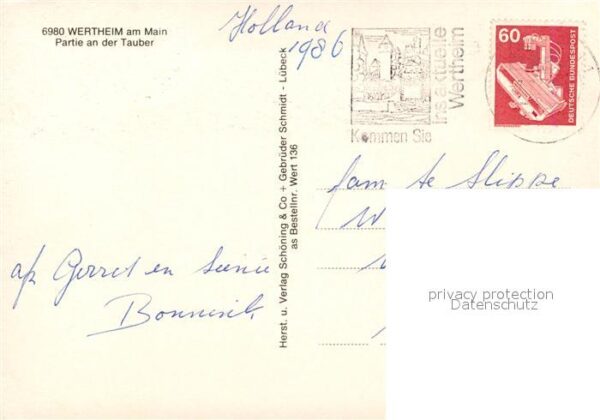 6980 WERTHEIM am Main
Partie an der Tauber
Holland
1986
Kommen Sie
ins aktuelle
Wertheim
60
DEUTSCHE BUNDESPOST
Herst. u. Verlag Schöning & Co + Gebrüder Schmidt - Lübeck
as Bestellnr. Wert 136
fam te
W
Gerret en
privacy protection
Datenschutz